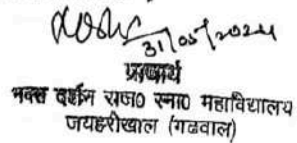 31/05/2024
प्राचार्य
भक्त दर्शन राज0 स्ना0 महाविद्यालय
जयहरीखाल (गढवाल)